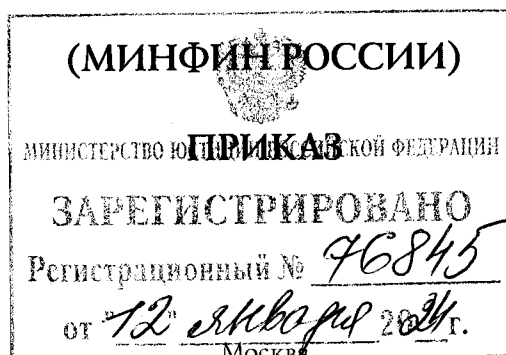 (МИНФИН РОССИИ)
ПРИКАЗ
МИНИСТЕРСТВО ЮСТИЦИИ РОССИЙСКОЙ ФЕДЕРАЦИИ
ЗАРЕГИСТРИРОВАНО
Регистрационный № 76845
от "12" января 2024 г.
Москва